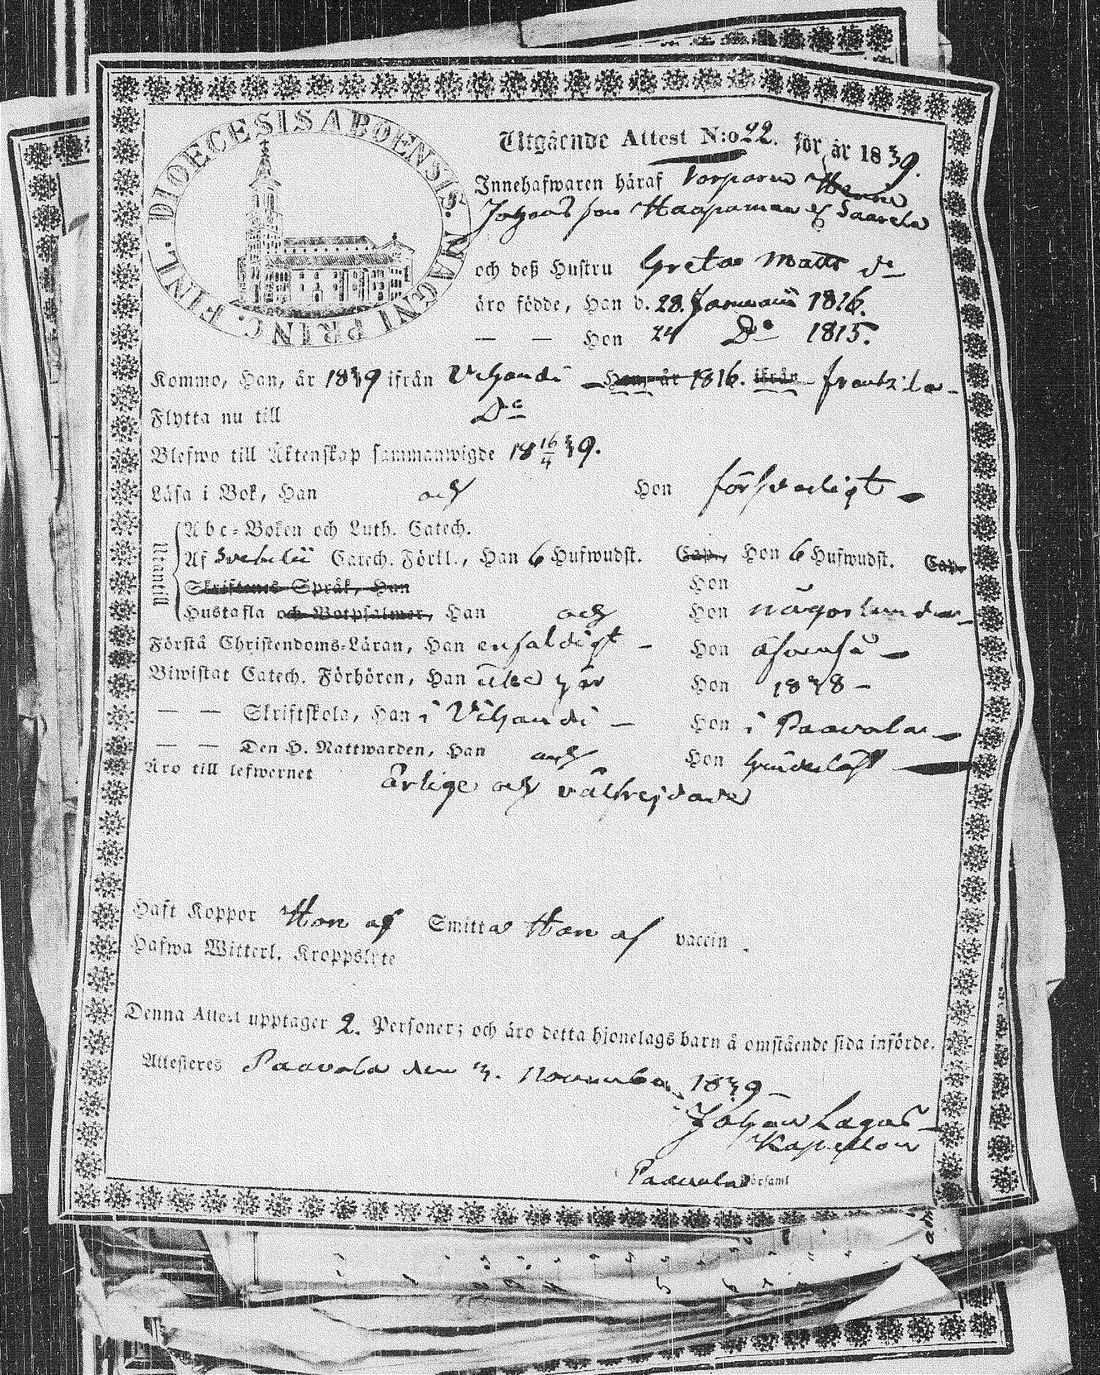 DIOECESIS ABOENSIS. MAGNI PRINC. FINL.
Utgående Attest N:o 22. för år 1839.
Innehafwaren häraf Torparen
Johans son Haapamaa Saarela
och deß Hustru Greta Matts dr
äro födde, Han d. 28. Januarii 1816.
— — Hon 24 Do 1815.
Kommo, Han, år 1839 ifrån Vihandi — Hon, år 1816. ifrån Frantsila —
Flytta nu till Do
Blefwo till Äktenskap sammanwigde 18 16/4 39.
Läsa i Bok, Han och Hon försvarligt —
Utantill
Abc-Boken och Luth. Catech.
Af Svebelii Catech. Förkl., Han 6 Hufwudst. Cap., Hon 6 Hufwudst. Cap.
Skriftenes Språk, Han Hon
Hustafla och Botpsalmer, Han och Hon någorlunda —
Förstå Christendoms-Läran, Han enfaldigt — Hon äfvenså —
Biwistat Catech. Förhören, Han Hon 1838 —
— — Skriftskola, Han i Vihandi — Hon i Paavola —
— — Den H. Nattwarden, Han och Hon
Äro till lefwernet ärlige och välfrejdade
Haft Koppor Hon af Smitta Han af vaccin.
Hafwa Witterl. Kroppslyte
Denna Attest upptager 2. Personer; och äro detta hjonelags barn å omstående sida införde.
Attesteras Paavola den 3. November 1839
Johan Lagus
Kapellan
Paavola Församl